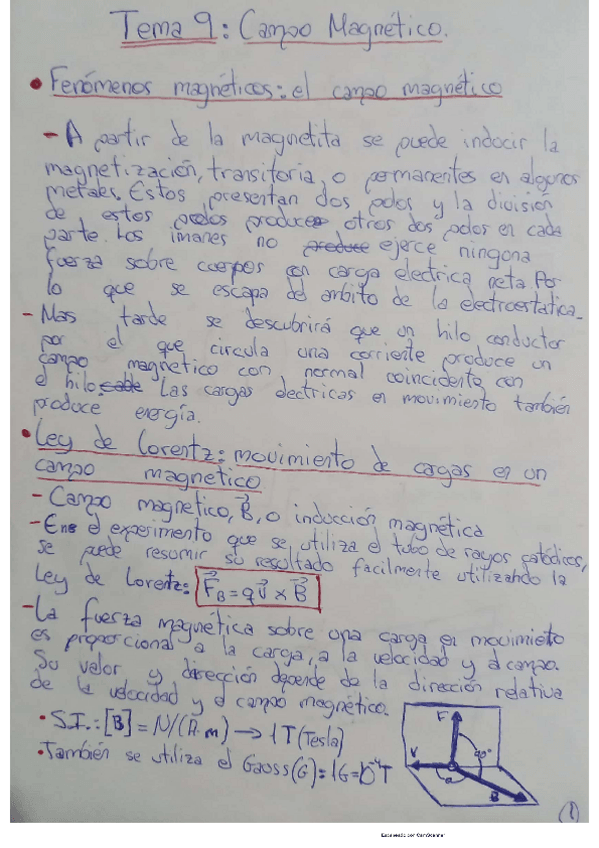 Tema 9: Campo Magnético.
• Fenómenos magnéticos: el campo magnético
- A partir de la magnetita se puede inducir la
magnetización, transitoria, o permanentes en algunos
metales. Estos presentan dos polos y la división
de estos polos produce otros dos polos en cada
parte. Los imanes no produce ejerce ninguna
fuerza sobre cuerpos con carga electrica neta. Por
lo que se escapa del ambito de la electroestatica.
- Mas tarde se descubrirá que un hilo conductor
por el que circula una corriente produce un
campo magnetico con normal coincidente con
el hilo. cable Las cargas electricas en movimiento también
produce energía.
• Ley de Lorentz: movimiento de cagas en un
campo magnetico
- Campo magnetico, B⃗, o inducción magnética
- Ene el experimento que se utiliza el tubo de rayos catódicos,
se puede resumir su resultado facilmente utilizando la
Ley de Lorentz: F⃗B = q v⃗ × B⃗
- La fuerza magnética sobre una carga en movimieto
es proporcional a la carga, a la velocidad y al campo.
Su valor y dirección depende de la dirección relativa
de la velocidad y el campo magnético.
• S.I.: [B] = N/(A·m) → 1T (Tesla)
• También se utiliza el Gauss(G): 1G=10⁻⁴T
F
V
90°
α
B
1
Escaneado con CamScanner